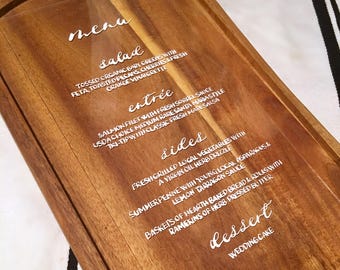 menu
salad
TOSSED ORGANIC BABY GREENS WITH
FETA, TOASTED PECANS, CHERRIES & FRESH
ORANGE VINAIGRETTE
entrée
SALMON FILET WITH FRESH SAUCE
USDA CHOICE MEDIUM RARE SANTA MARIA STYLE
TRI-TIP WITH CLASSIC FRESH SALSA
sides
FRESH GRILLED LOCAL VEGETABLES WITH
A VIRGIN OIL HERB DRIZZLE
SUMMER PENNE WITH YOUNG LOCAL
LEMON TARRAGON SAUCE
BASKETS OF HEARTH BAKED BREAD ROLLS WITH
RAMEKINS OF HERB BUTTER
dessert
WEDDING CAKE